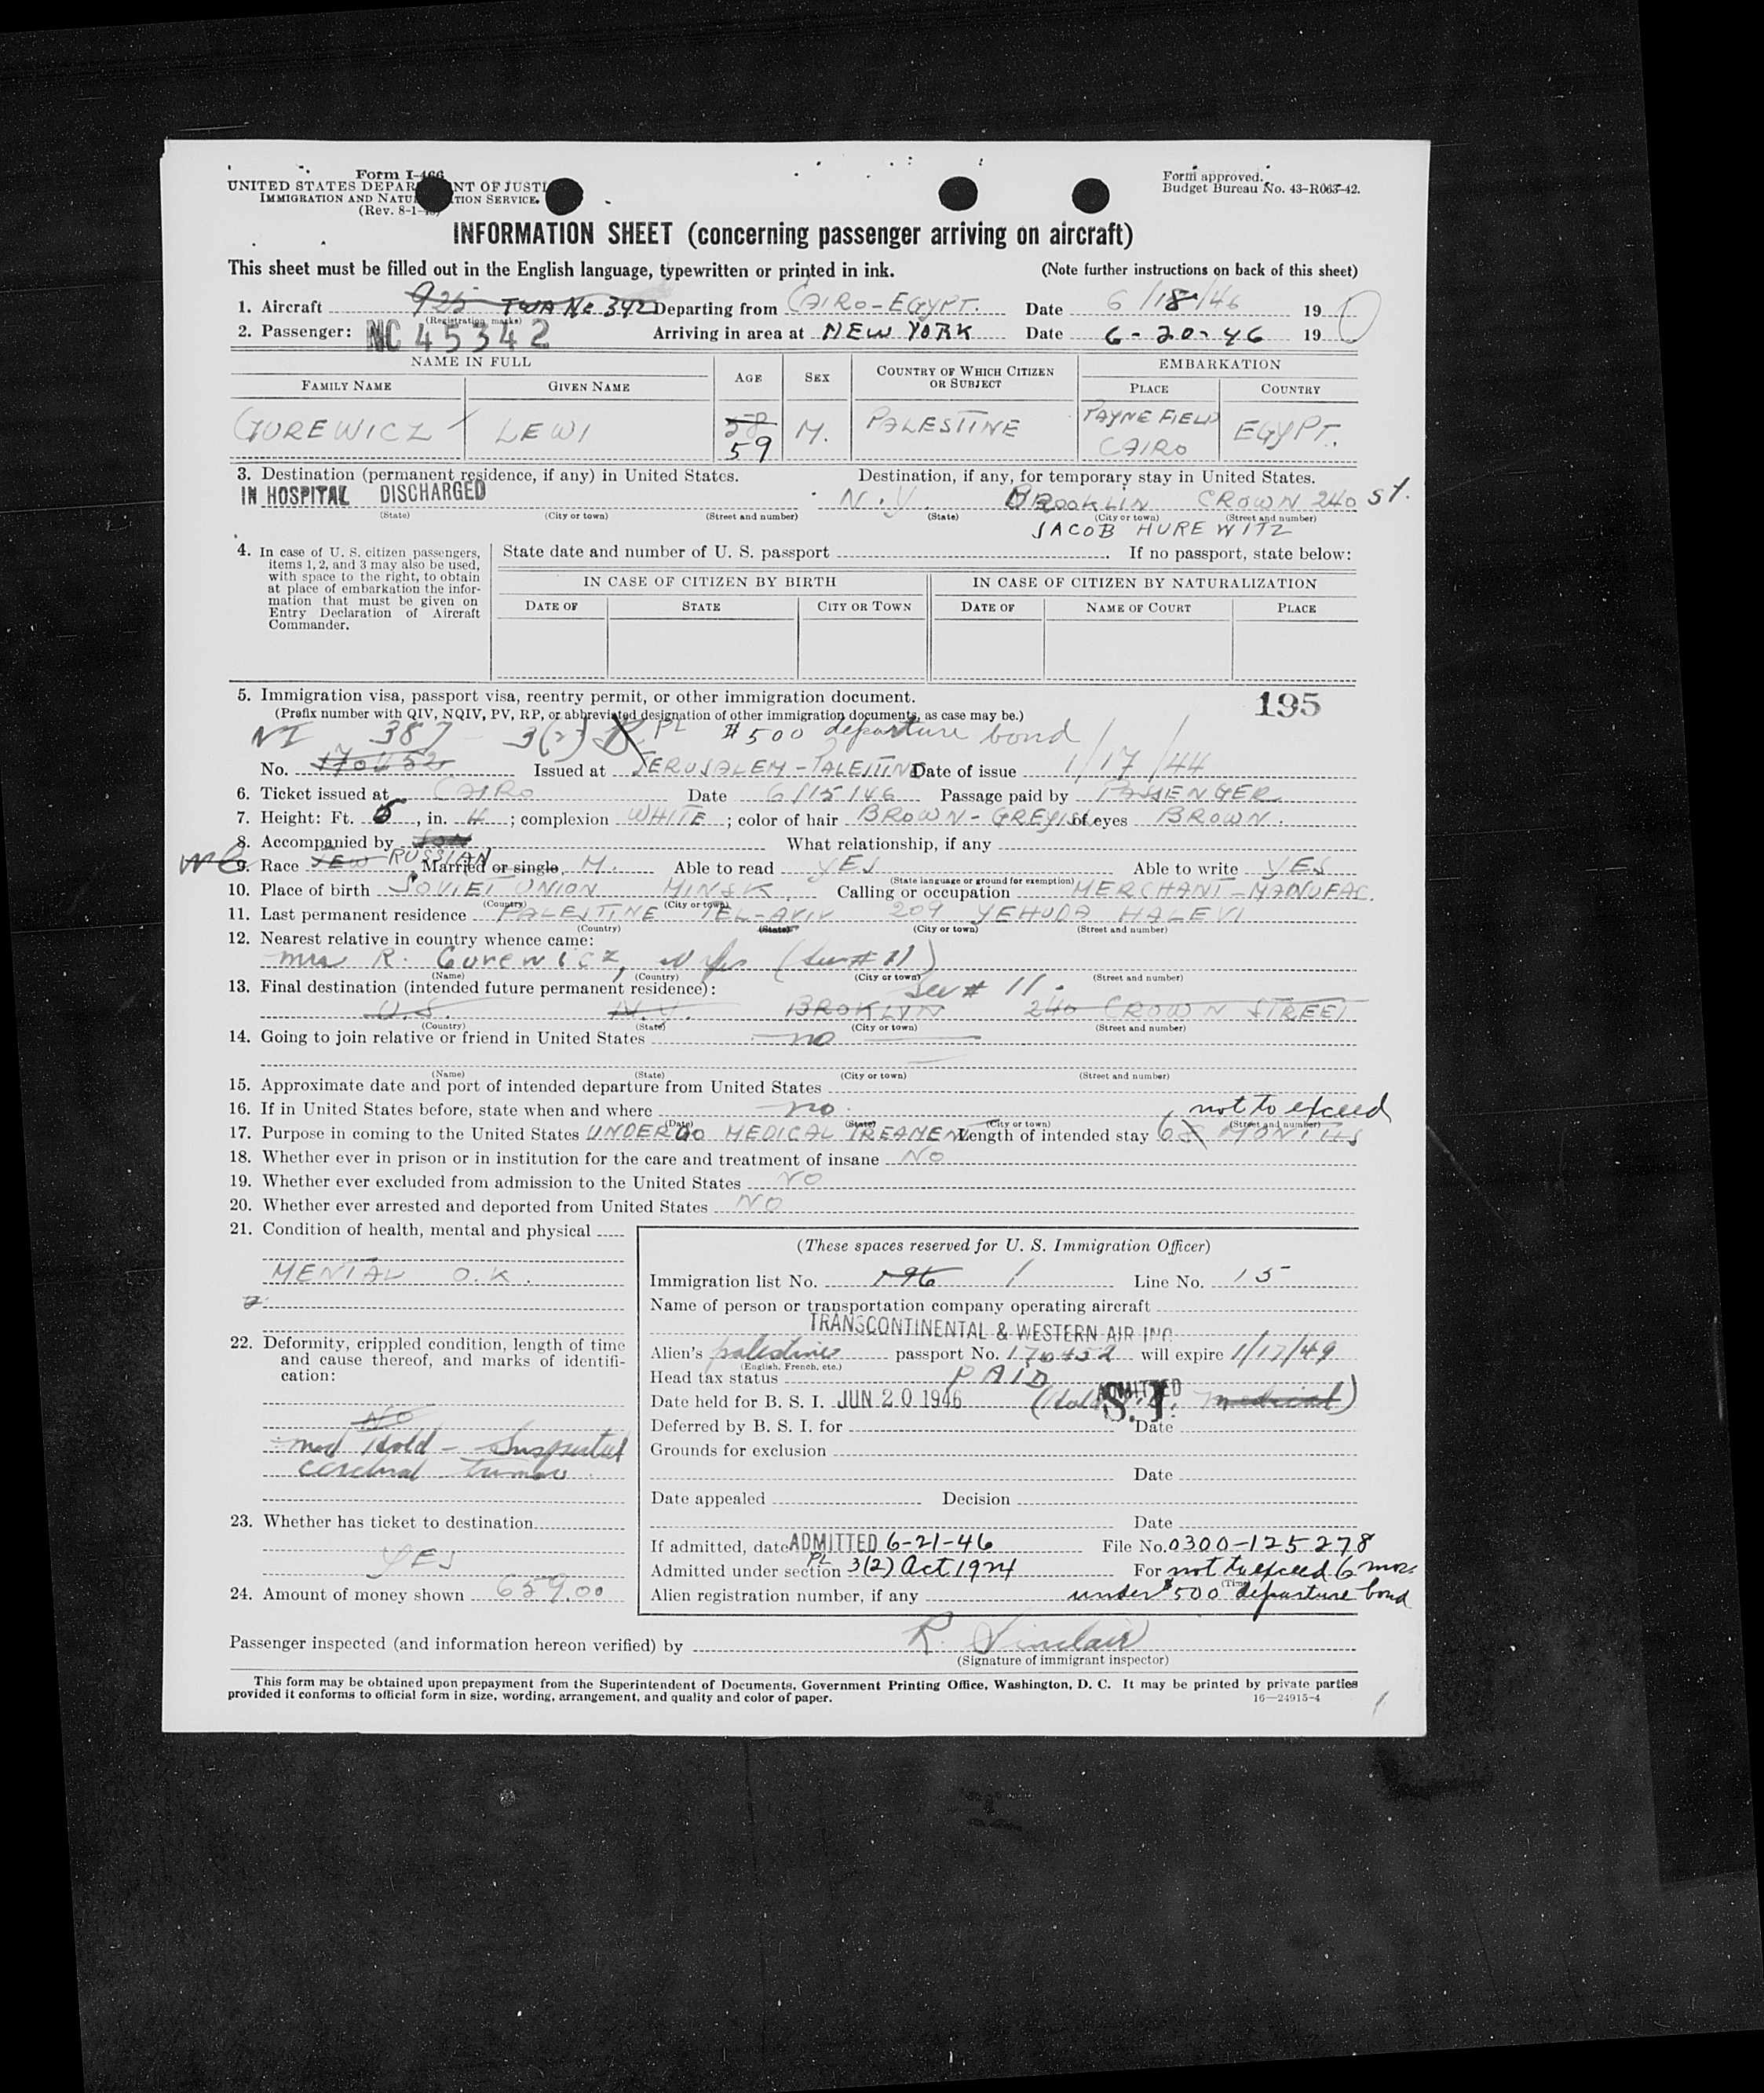 Form I-466
UNITED STATES DEPAR NT OF JUSTI
IMMIGRATION AND NATU TION SERVICE
(Rev. 8-1-
Form approved.
Budget Bureau No. 43-R063-42.
INFORMATION SHEET (concerning passenger arriving on aircraft)
This sheet must be filled out in the English language, typewritten or printed in ink. (Note further instructions on back of this sheet)
1. Aircraft 925 TWA No 342 Departing from CAIRO-EGYPT. Date 6/18/46 19
(Registration marks)
2. Passenger: NC 45342 Arriving in area at NEW YORK Date 6-20-46 19
NAME IN FULL
FAMILY NAME GIVEN NAME AGE SEX COUNTRY OF WHICH CITIZEN OR SUBJECT EMBARKATION
PLACE COUNTRY
GUREWICZ LEWI 58 59 M. PALESTINE PAYNE FIELD CAIRO EGYPT.
3. Destination (permanent residence, if any) in United States. Destination, if any, for temporary stay in United States.
IN HOSPITAL DISCHARGED N.Y. BROOKLIN CROWN 240 St.
(State) (City or town) (Street and number) (State) (City or town) (Street and number)
JACOB HUREWITZ
4. In case of U. S. citizen passengers, items 1, 2, and 3 may also be used, with space to the right, to obtain at place of embarkation the information that must be given on Entry Declaration of Aircraft Commander.
State date and number of U. S. passport If no passport, state below:
IN CASE OF CITIZEN BY BIRTH IN CASE OF CITIZEN BY NATURALIZATION
DATE OF STATE CITY OR TOWN DATE OF NAME OF COURT PLACE
5. Immigration visa, passport visa, reentry permit, or other immigration document. 195
(Prefix number with QIV, NQIV, PV, RP, or abbreviated designation of other immigration documents, as case may be.)
NI 387 3(2) PL $500 departure bond
No. 170452 Issued at JERUSALEM-PALESTINE Date of issue 1/17/44
6. Ticket issued at CAIRO Date 6/15/46 Passage paid by PASSENGER
7. Height: Ft. 5, in. 4; complexion WHITE; color of hair BROWN-GREYISH of eyes BROWN.
8. Accompanied by SON What relationship, if any
9. Race JEW RUSSIAN Married or single, M. Able to read YES Able to write YES
(State language or ground for exemption)
10. Place of birth SOVIET UNION MINSK Calling or occupation MERCHANT-MANUFAC.
(Country) (City or town)
11. Last permanent residence PALESTINE TEL-AVIV 209 YEHUDA HALEVI
(Country) (State) (City or town) (Street and number)
12. Nearest relative in country whence came:
Mrs R. Gurewicz, (See # 11)
(Name) (Country) (City or town) (Street and number)
13. Final destination (intended future permanent residence): See # 11.
U.S. N.Y. BROKLYN 240 CROWN STREET
(Country) (State) (City or town) (Street and number)
14. Going to join relative or friend in United States no
(Name) (State) (City or town) (Street and number)
15. Approximate date and port of intended departure from United States
16. If in United States before, state when and where no. not to exceed
(Date) (State) (City or town) (Street and number)
17. Purpose in coming to the United States UNDERGO MEDICAL TREAMENT Length of intended stay 6 8 MONTHS
18. Whether ever in prison or in institution for the care and treatment of insane NO
19. Whether ever excluded from admission to the United States NO
20. Whether ever arrested and deported from United States NO
21. Condition of health, mental and physical
MENTAL O.K.
22. Deformity, crippled condition, length of time and cause thereof, and marks of identification:
NO
med Hold - Suspected
cerebral tumor
23. Whether has ticket to destination
YES
24. Amount of money shown 659.00
(These spaces reserved for U. S. Immigration Officer)
Immigration list No. 196 1 Line No. 15
Name of person or transportation company operating aircraft
TRANSCONTINENTAL & WESTERN AIR INC
Alien's palestine passport No. 170452 will expire 1/17/49
(English, French, etc.)
Head tax status PAID
Date held for B. S. I. JUN 20 1946 ADMITTED S.I. medical)
Deferred by B. S. I. for Date
Grounds for exclusion
Date
Date appealed Decision
Date
If admitted, date ADMITTED 6-21-46 File No. 0300-125278
Admitted under section PL 3(2) Act 1924 For not to exceed 6 mos.
(Time)
Alien registration number, if any under $500 departure bond
Passenger inspected (and information hereon verified) by R. Sinclair
(Signature of immigrant inspector)
This form may be obtained upon prepayment from the Superintendent of Documents, Government Printing Office, Washington, D. C. It may be printed by private parties
provided it conforms to official form in size, wording, arrangement, and quality and color of paper. 16—24915-4